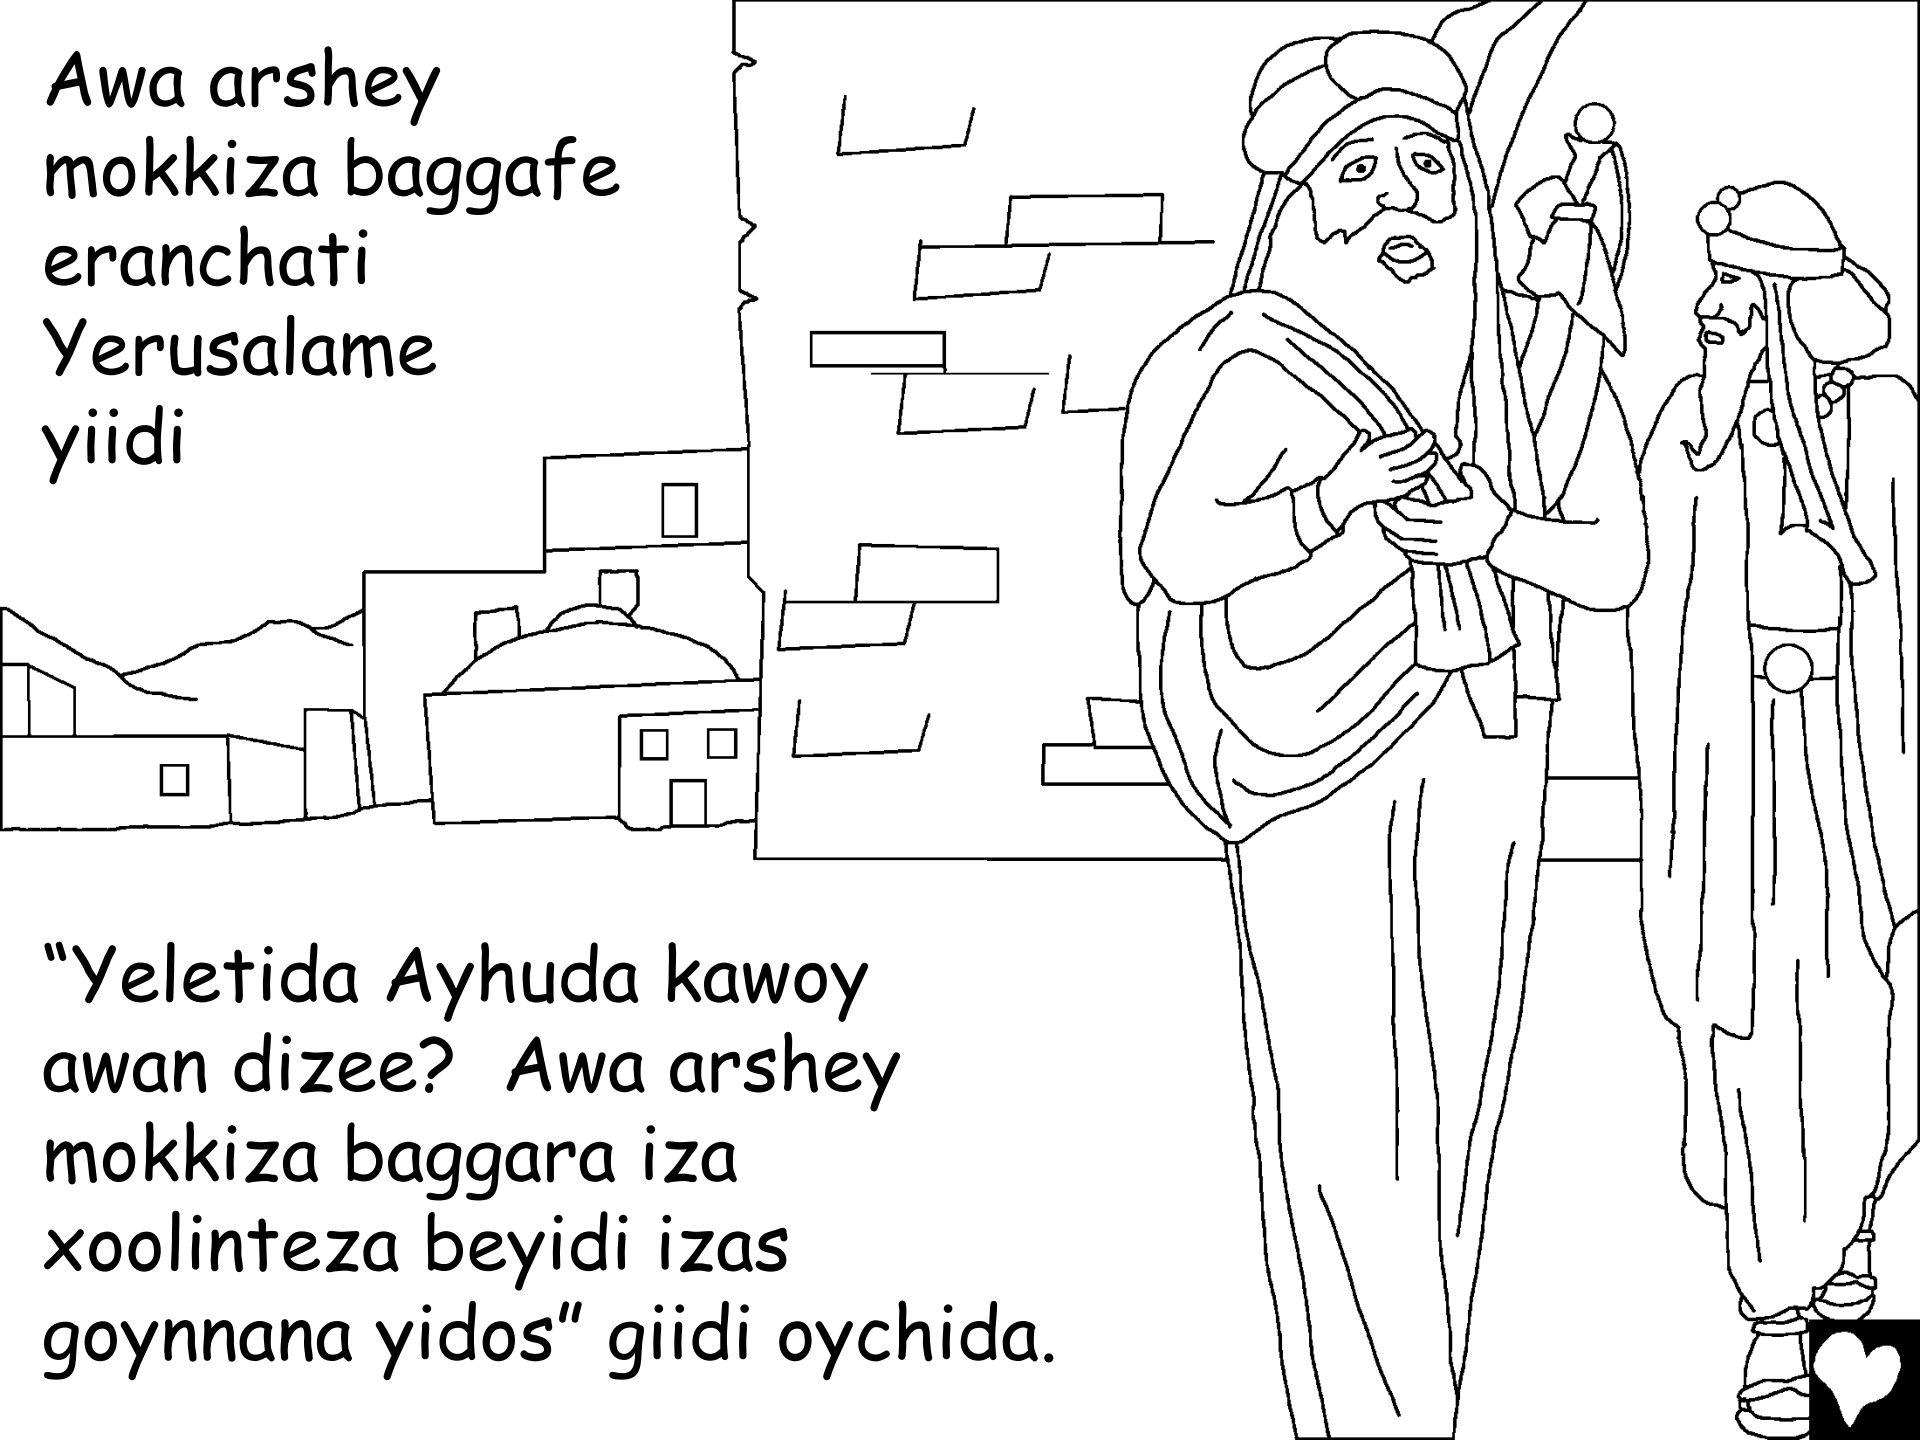 Awa arshey
mokkiza baggafe
eranchati
Yerusalame
yiidi
“Yeletida Ayhuda kawoy
awan dizee?  Awa arshey
mokkiza baggara iza
xoolinteza beyidi izas
goynnana yidos” giidi oychida.